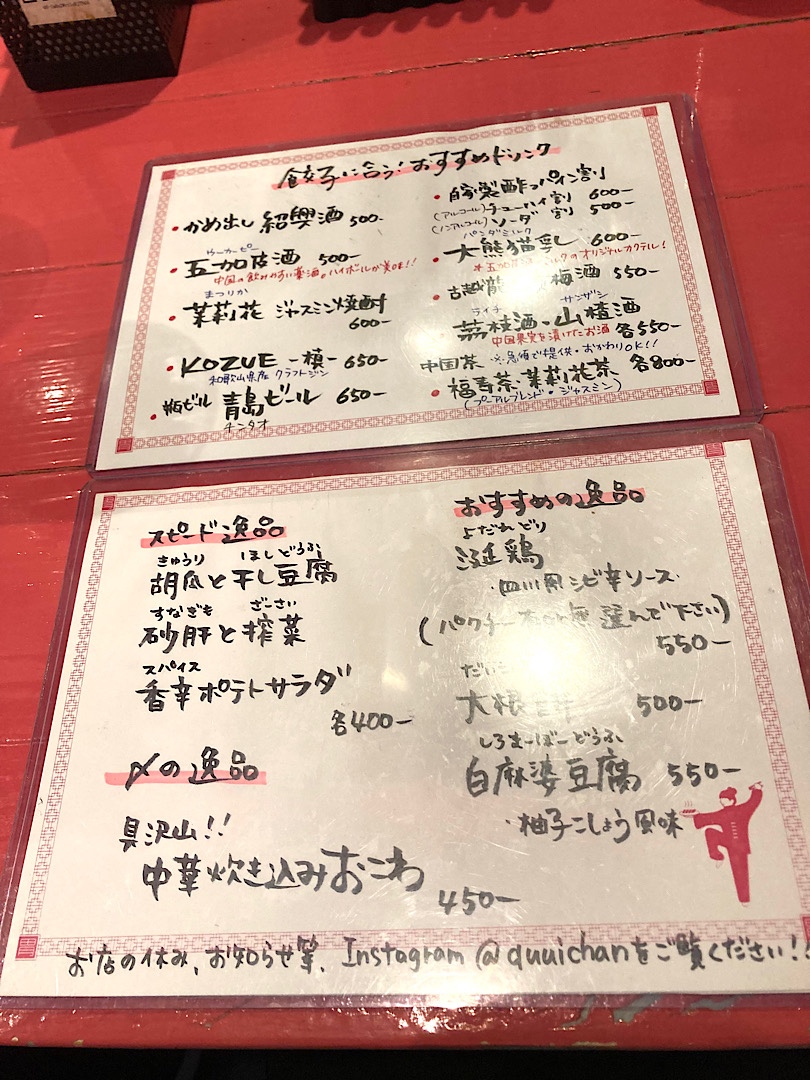 餃子に合う！おすすめドリンク
・かめ出し 紹興酒 500-
ウーカーピー
・五加皮酒 500-
中国の飲みやすい薬酒。ハイボールが美味!!
まつりか
・茉莉花 ジャスミン焼酎
600-
・KOZUE -槙- 650-
和歌山県産 クラフトジン
・瓶ビール 青島ビール 650-
チンタオ
・自家製酢っパイン割り
(アルコール)チューハイ割 600-
(ノンアルコール)ソーダ割 500-
パンダミルク
・大熊猫乳 600-
＊五加 ミルクのオリジナルカクテル！
・古越 梅酒 550-
ライチ サンザシ
・茘枝酒・山楂酒
中国果実を漬けたお酒 各550-
中国茶 ※急須で提供・おかわりOK!!
・福寿茶・茉莉花茶 各800-
(プーアルブレンド・ジャスミン)
スピード逸品
きゅうり ほしどうふ
胡瓜と干し豆腐
すなぎも ざーさい
砂肝と搾菜
スパイス
香辛ポテトサラダ
各400-
〆の逸品
具沢山!!
中華炊き込みおこわ
450-
おすすめの逸品
よだれどり
涎鶏
・四川風シビ辛ソース・
(パクチー 選んで下さい)
550-
だい
大根 500-
しろまーぼーどうふ
白麻婆豆腐 550-
・柚子こしょう風味
お店の休み、お知らせ等、Instagram @quuichanをご覧ください!!